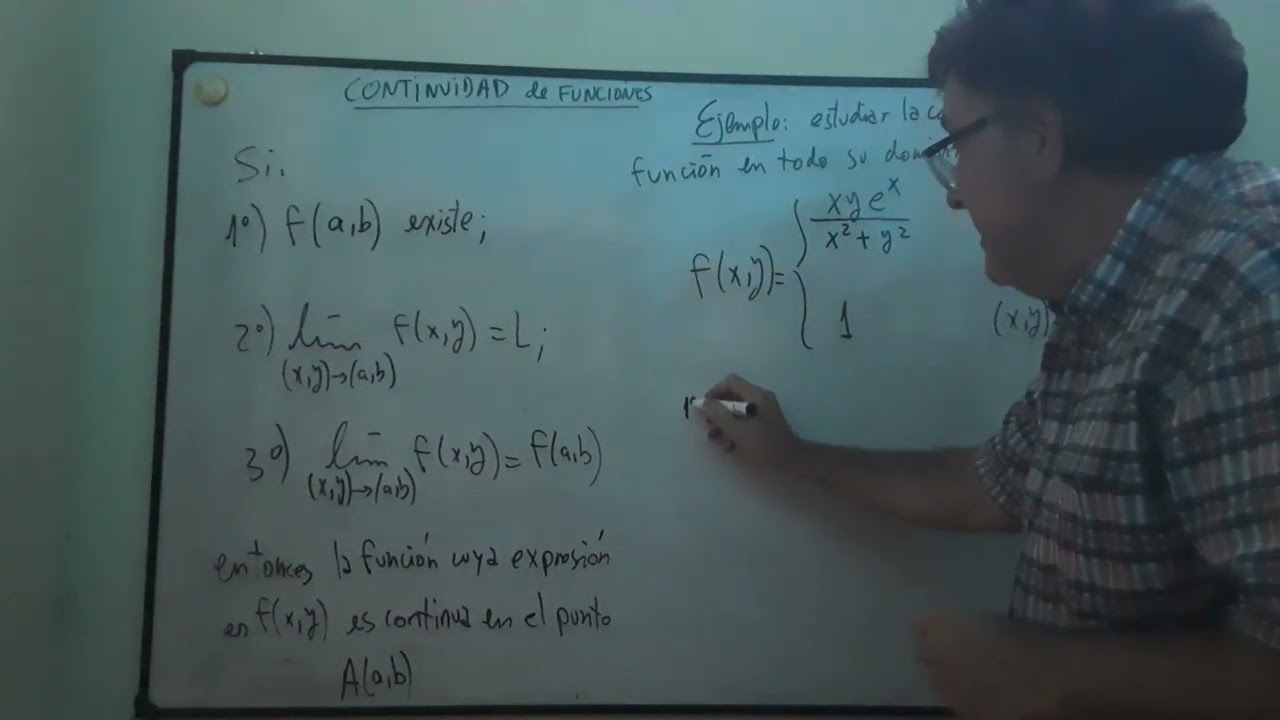 CONTINUIDAD de FUNCIONES
Si.
1º) f(a,b) existe;
2º) lim f(x,y) = L;
(x,y)→(a,b)
3º) lim f(x,y) = f(a,b)
(x,y)→(a,b)
entonces la función cuya expresión
es f(x,y) es continua en el punto
A(a,b)
Ejemplo: estudiar la
función en todo su
f(x,y)= { xy e^x / x² + y²
1 (x,y)
1º